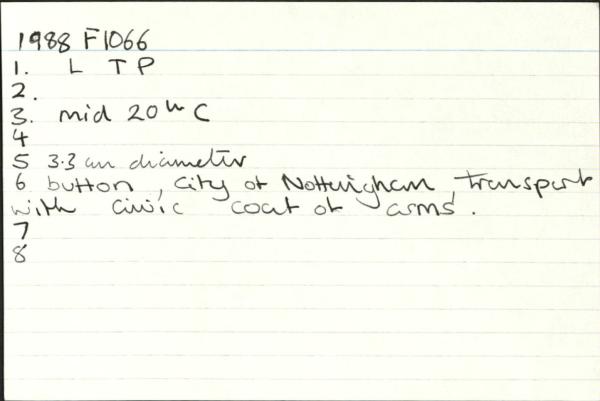 1988 F1066
1. L T P
2.
3. mid 20th C
4
5 3.3 cm diameter
6 button, City of Nottingham, Transport
with civic coat of arms.
7
8